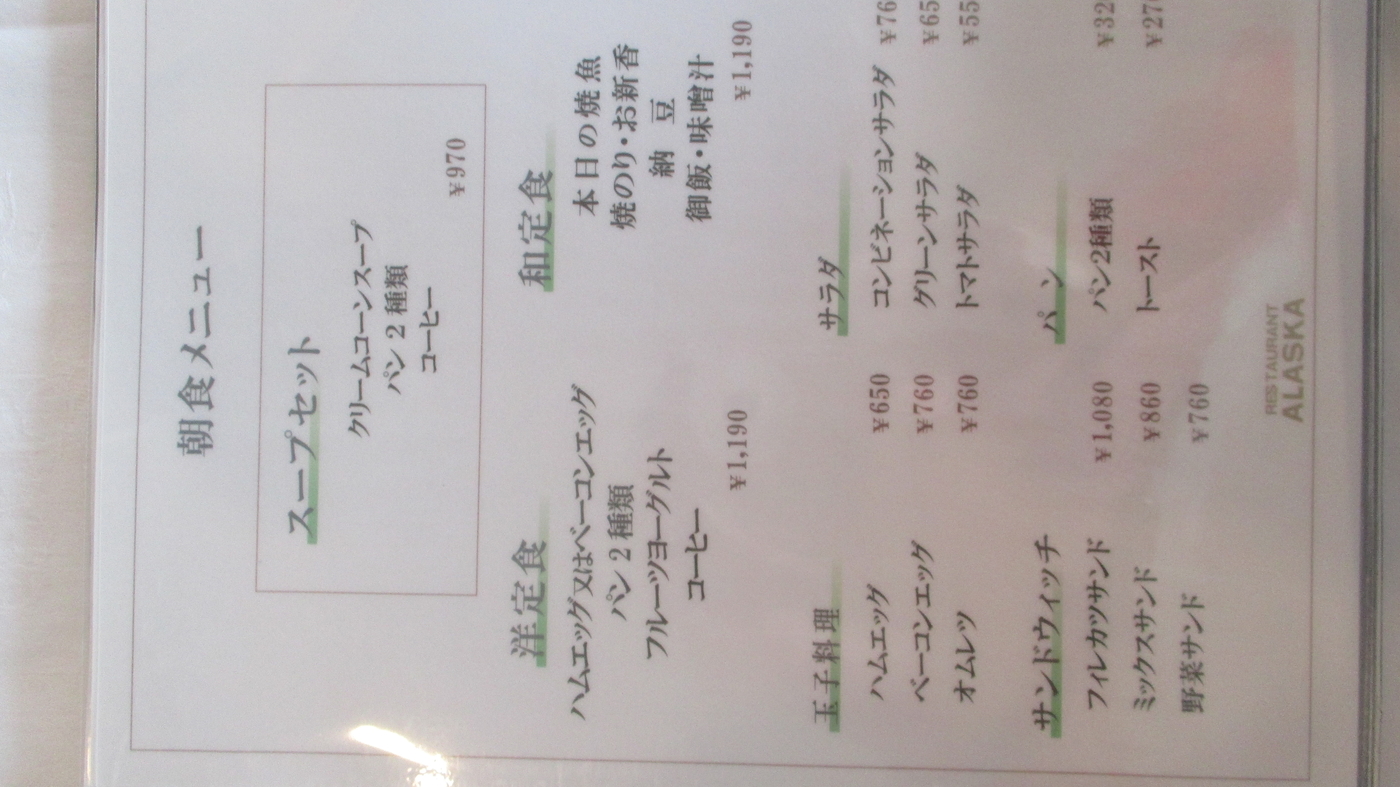 朝食メニュー
スープセット
クリームコーンスープ
パン2種類
コーヒー
¥970
洋定食
ハムエッグ又はベーコンエッグ
パン2種類
フルーツヨーグルト
コーヒー
¥1,190
和定食
本日の焼魚
焼のり・お新香
納豆
御飯・味噌汁
¥1,190
玉子料理
ハムエッグ ¥650
ベーコンエッグ ¥760
オムレツ ¥760
サラダ
コンビネーションサラダ ¥76
グリーンサラダ ¥65
トマトサラダ ¥55
サンドウィッチ
フィレカツサンド ¥1,080
ミックスサンド ¥860
野菜サンド ¥760
パン
パン2種類 ¥32
トースト ¥27
RESTAURANT
ALASKA